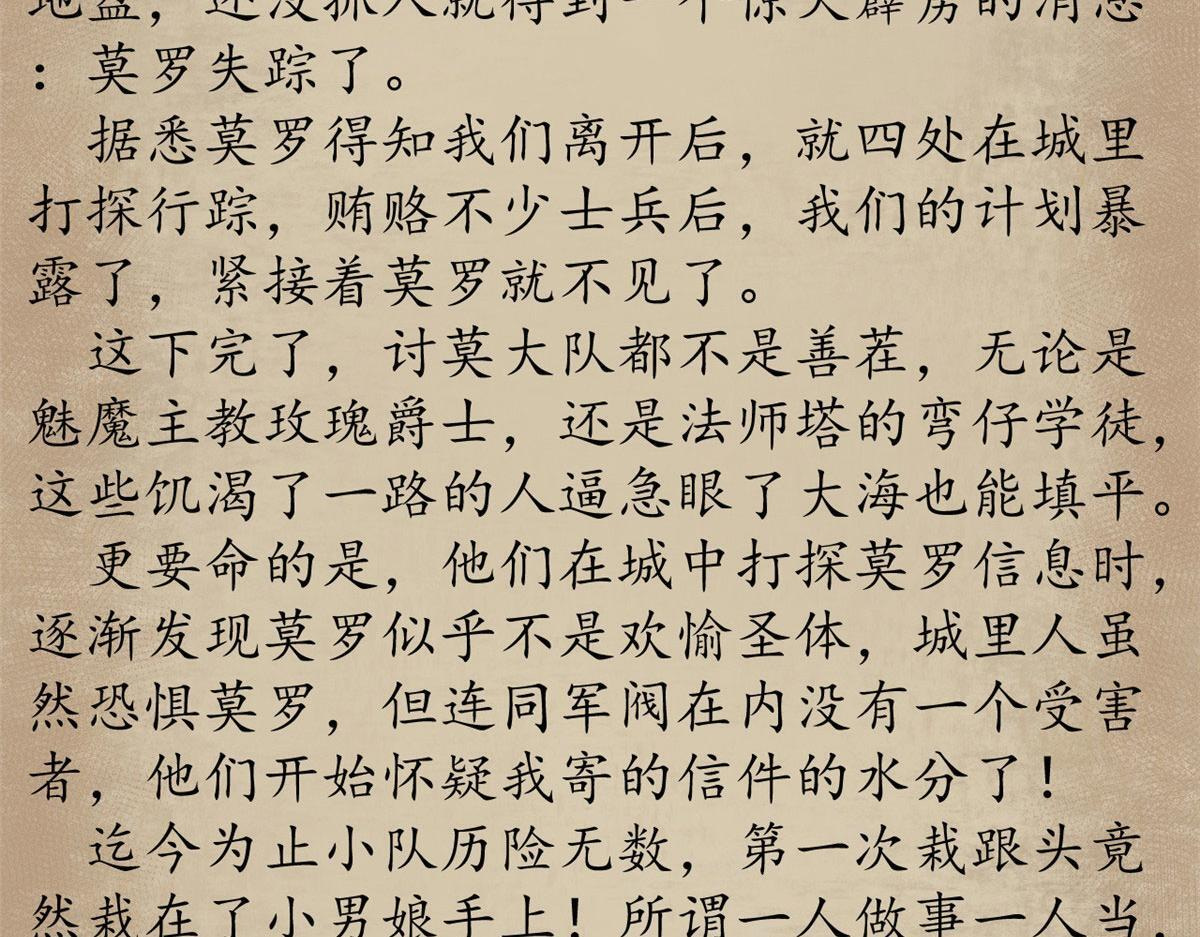 地盘，还没抓人就得到一个惊天霹雳的消息
：莫罗失踪了。
据悉莫罗得知我们离开后，就四处在城里
打探行踪，贿赂不少士兵后，我们的计划暴
露了，紧接着莫罗就不见了。
这下完了，讨莫大队都不是善茬，无论是
魅魔主教玫瑰爵士，还是法师塔的弯仔学徒，
这些饥渴了一路的人逼急眼了大海也能填平。
更要命的是，他们在城中打探莫罗信息时，
逐渐发现莫罗似乎不是欢愉圣体，城里人虽
然恐惧莫罗，但连同军阀在内没有一个受害
者，他们开始怀疑我寄的信件的水分了！
迄今为止小队历险无数，第一次栽跟头竟
然栽在了小男娘手上！所谓一人做事一人当，